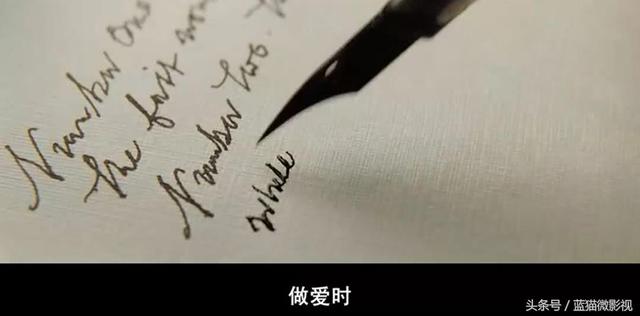 Number One
the first
Number Two.
while
做爱时
头条号／蓝猫微影视